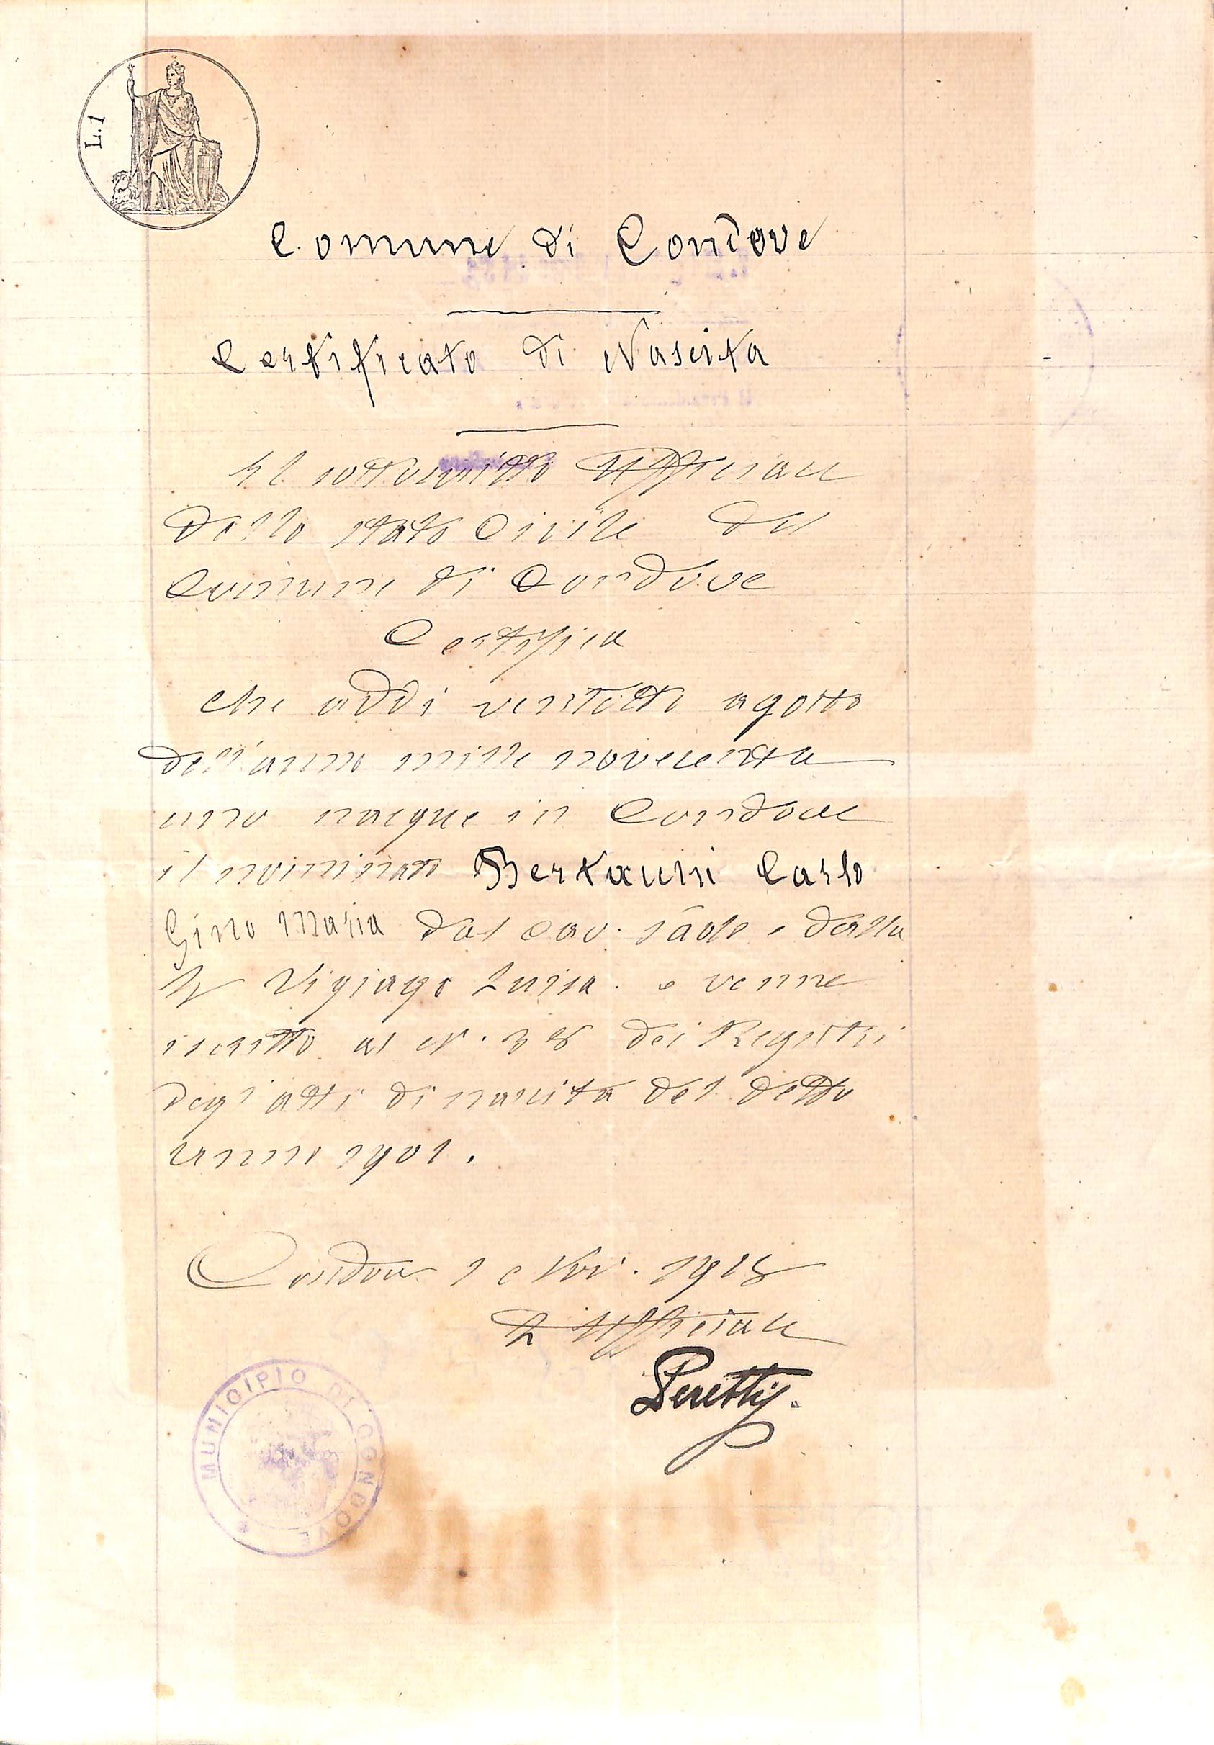 L. 1
Comune di Condove
Certificato di Nascita
Il sottoscritto Ufficiale
dello stato Civile del
Comune di Condove
Certifica
che addì ventotto agosto
dell'anno mille novecento
uno nacque in Condove
il nominato Bertacini Carlo
Gino Maria dal Cav. e della
Luisa. e venne
iscritto al N. 38 dei Registri
degli atti di nascita del detto
anno 1901.
Condove 1918
L'Ufficiale
Peretti
MUNICIPIO DI CONDOVE